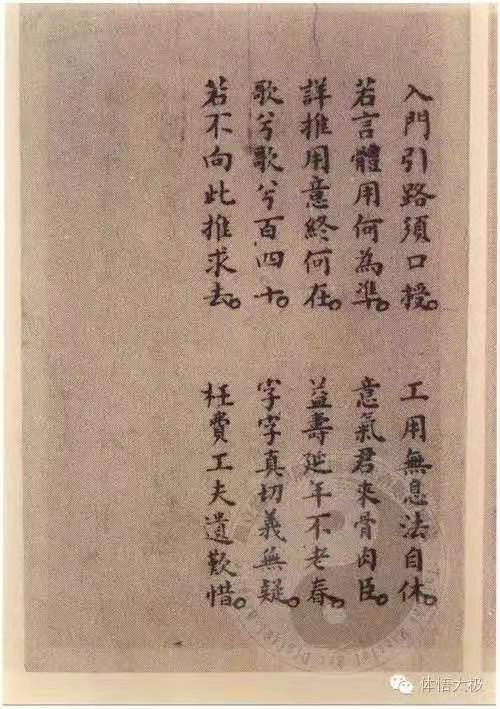 入門引路須口授。工用無息法自休。
若言體用何為準。意氣君來骨肉臣。
詳推用意終何在。益壽延年不老春。
歌兮歌兮百四十。字字真切義無疑。
若不向此推求去。枉費工夫遺歎惜。
体悟太极